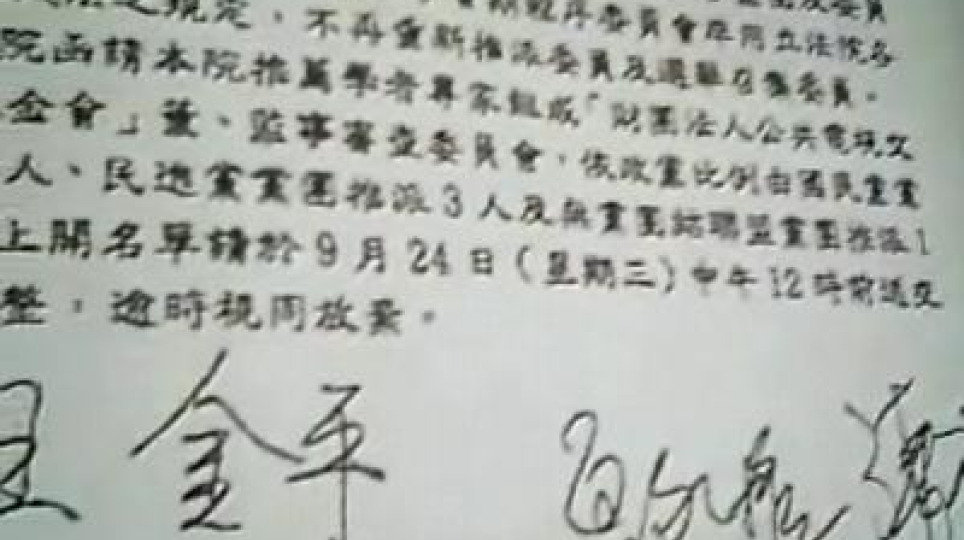 之規定,不再重新推派委員及選舉召集委員。
院函請本院推薦學者專家組成「財團法人公共電視文
金會」董、監事審查委員會,依政黨比例由國民黨黨
人、民進黨黨團推派3人及無黨團結聯盟黨團推派1
上開名單請於9月24日(星期二)中午12時前送交
整,逾時視同放棄。
王金平